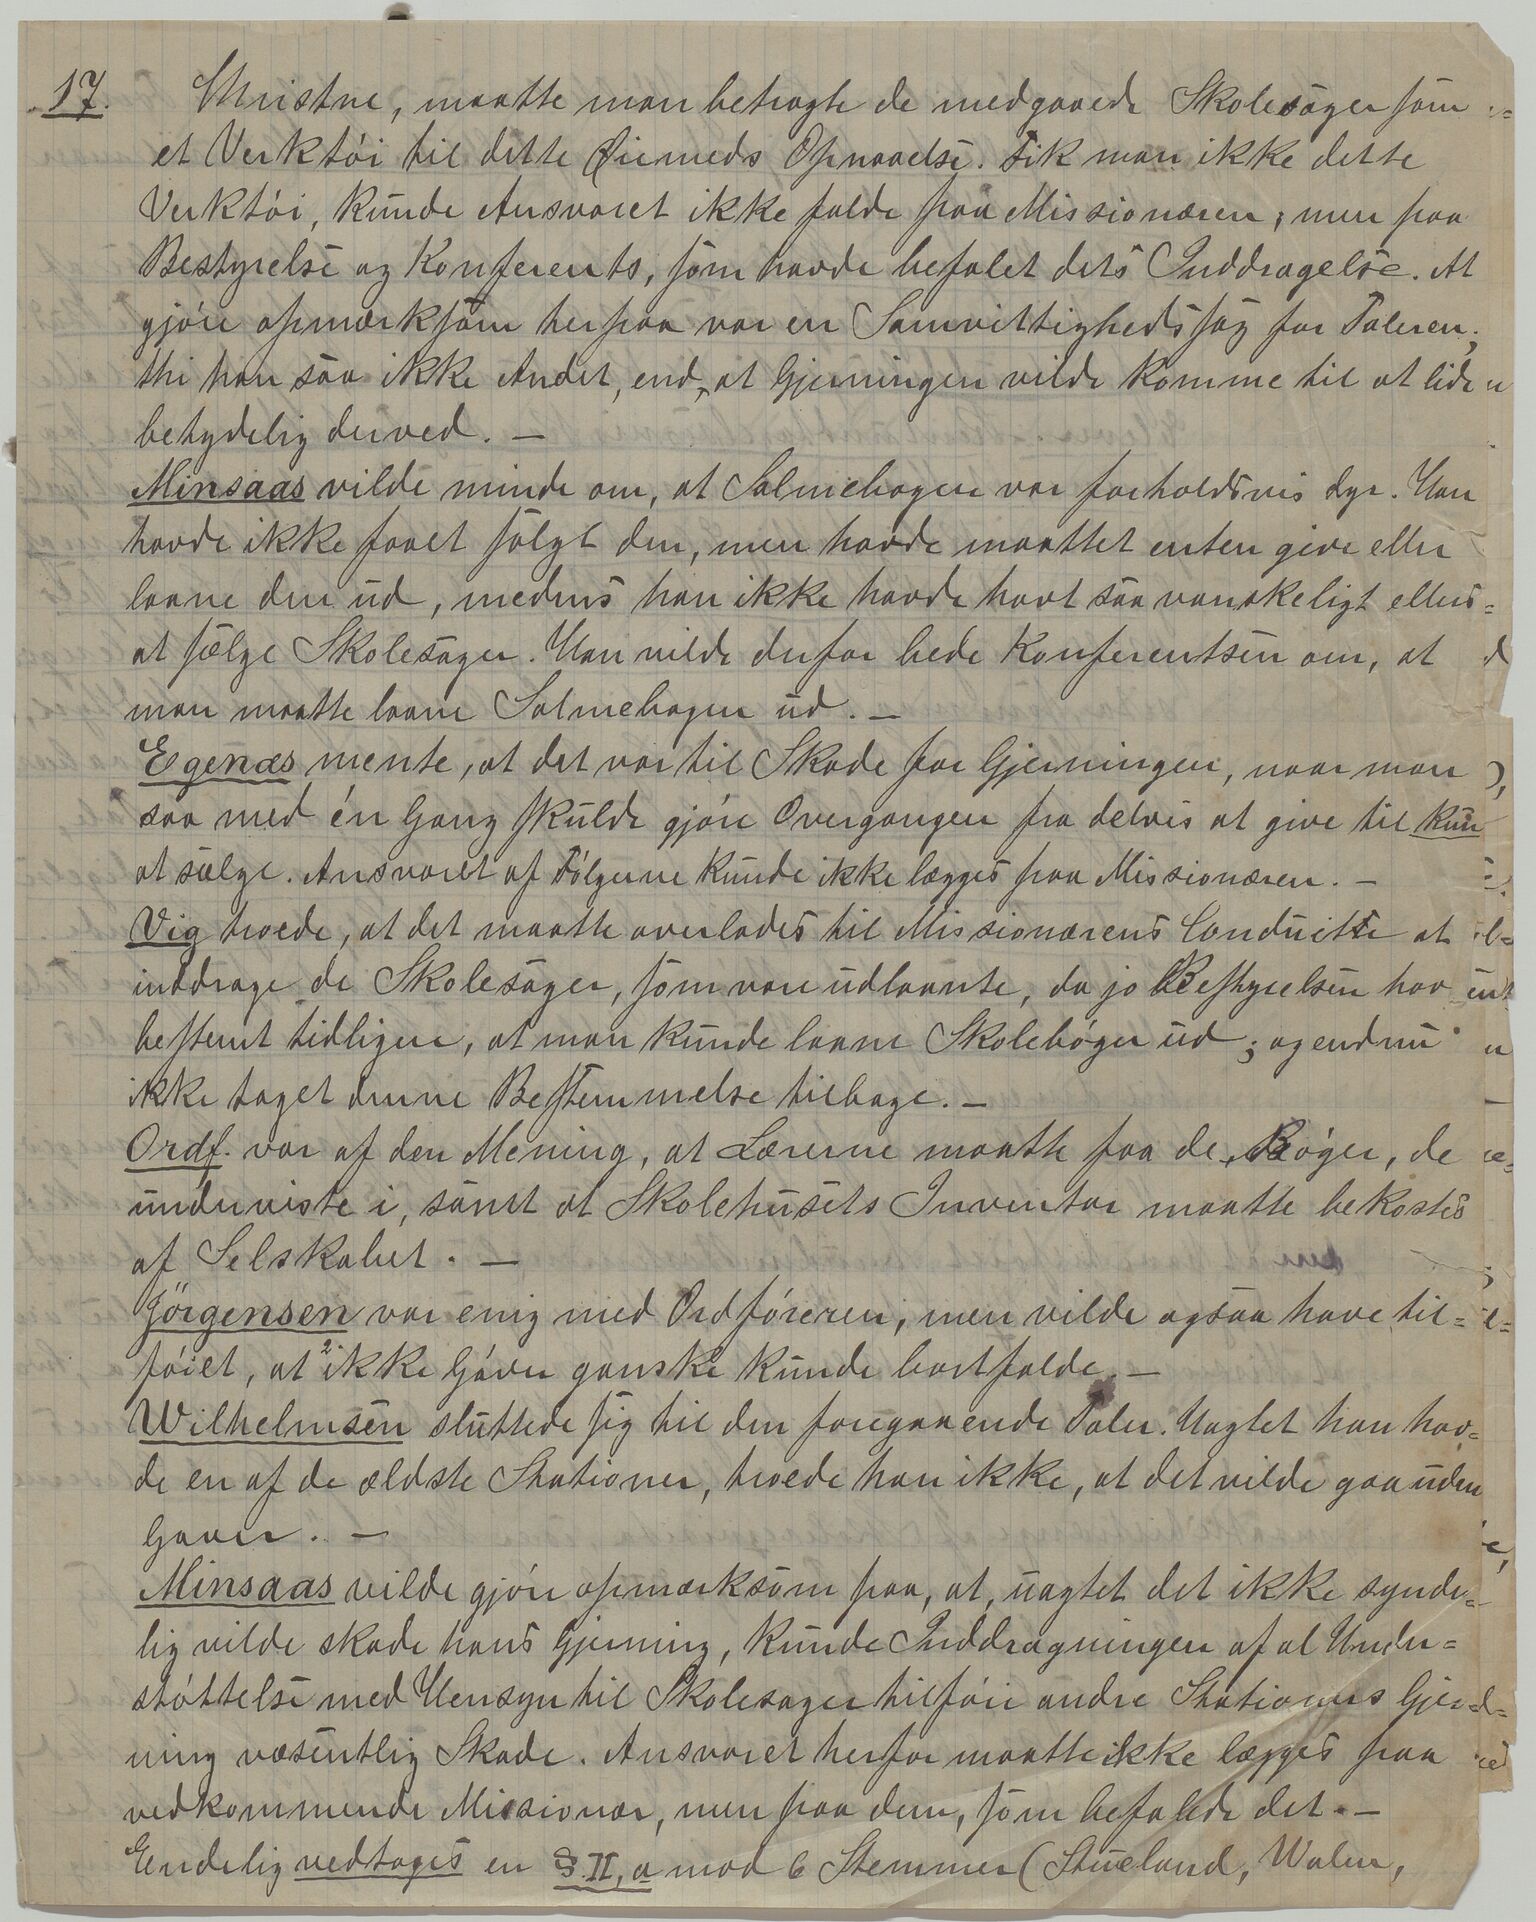 17.
Christne, maatte man betragte de medgaaede Skolesager som
et Verktöi til dette Øiemeds Opnaaelse. Fik man ikke dette
Verktöi, kunde Ansvaret ikke falde paa Missionæren, men paa
Bestyrelse og Konferents, som havde befalet dets Inddragelse. At
gjöre opmærksom herpaa var en Samvittighedssag for Taleren;
thi han saa ikke Andet, end, at Gjerningen vilde komme til at lide
betydelig derved. —
Minsaas vilde minde om, at Salmebogen var forholdsvis dyr. Han
havde ikke faaet solgt den, men havde maattet enten give eller
laane den ud, medens han ikke havde havt saa vanskeligt ellers=
at sælge Skolesager. Han vilde derfor bede Konferentsen om, at
man maatte laane Salmebogen ud. —
Egenæs mente, at det var til Skade for Gjerningen, naar man
saa med én Gang skulde gjöre Overgangen fra delvis at give til kun
at sælge. Ansvaret af Fölgerne kunde ikke lægges paa Missionæren. —
Vig troede, at det maatte overlades til Missionærens Conduitte at
inddrage de Skolesager, som vare udlaante, da jo Bestyrelsen hav
bestemt tidligere, at man kunde laane Skoleböger ud; og endnu
ikke taget denne Bestemmelse tilbage. —
Ordf. var af den Mening, at Lærerne maatte faa de Böger, de
underviste i, samt at Skolehusets Inventar maatte bekostes
af Selskabet. —
Jörgensen var enig med Ordföreren, men vilde ogsaa have til=
föiet, at ikke Gaver ganske kunde bortfalde. —
Wilhelmsen sluttede sig til den foregaaende Taler. Uagtet han hav=
de en af de ældste Stationer, troede han ikke, at det vilde gaa uden
Gaver. —
Minsaas vilde gjöre opmærksom paa, at, uagtet det ikke synde=
lig vilde skade hans Gjerning, kunde Inddragningen af al Under=
stöttelse med Hensyn til Skolesager tilföie andre Stationers Gjer=
ning væsentlig Skade. Ansvaret herfor maatte ikke lægges paa
vedkommende Missionær, men paa dem, som befalede det. —
Endelig vedtoges en §. II, a mod 6 Stemmer (Stueland, Walen,